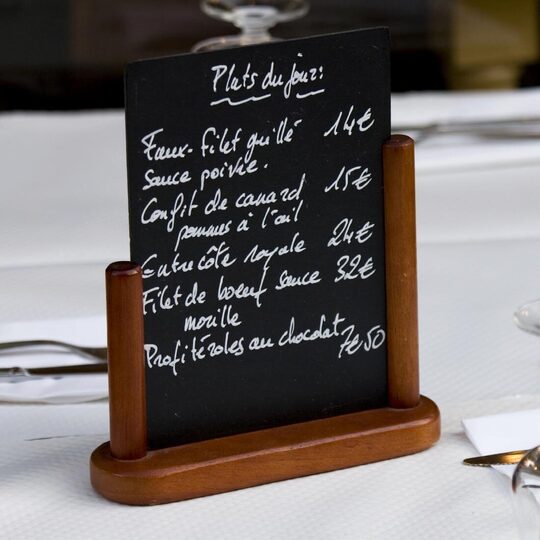 Plats du jour:
Faux-filet grillé 14€
sauce poivre.
Confit de canard 15€
pommes à l'ail
Entrecôte royale 24€
Filet de boeuf sauce 32€
morille
Profitéroles au chocolat 7€50